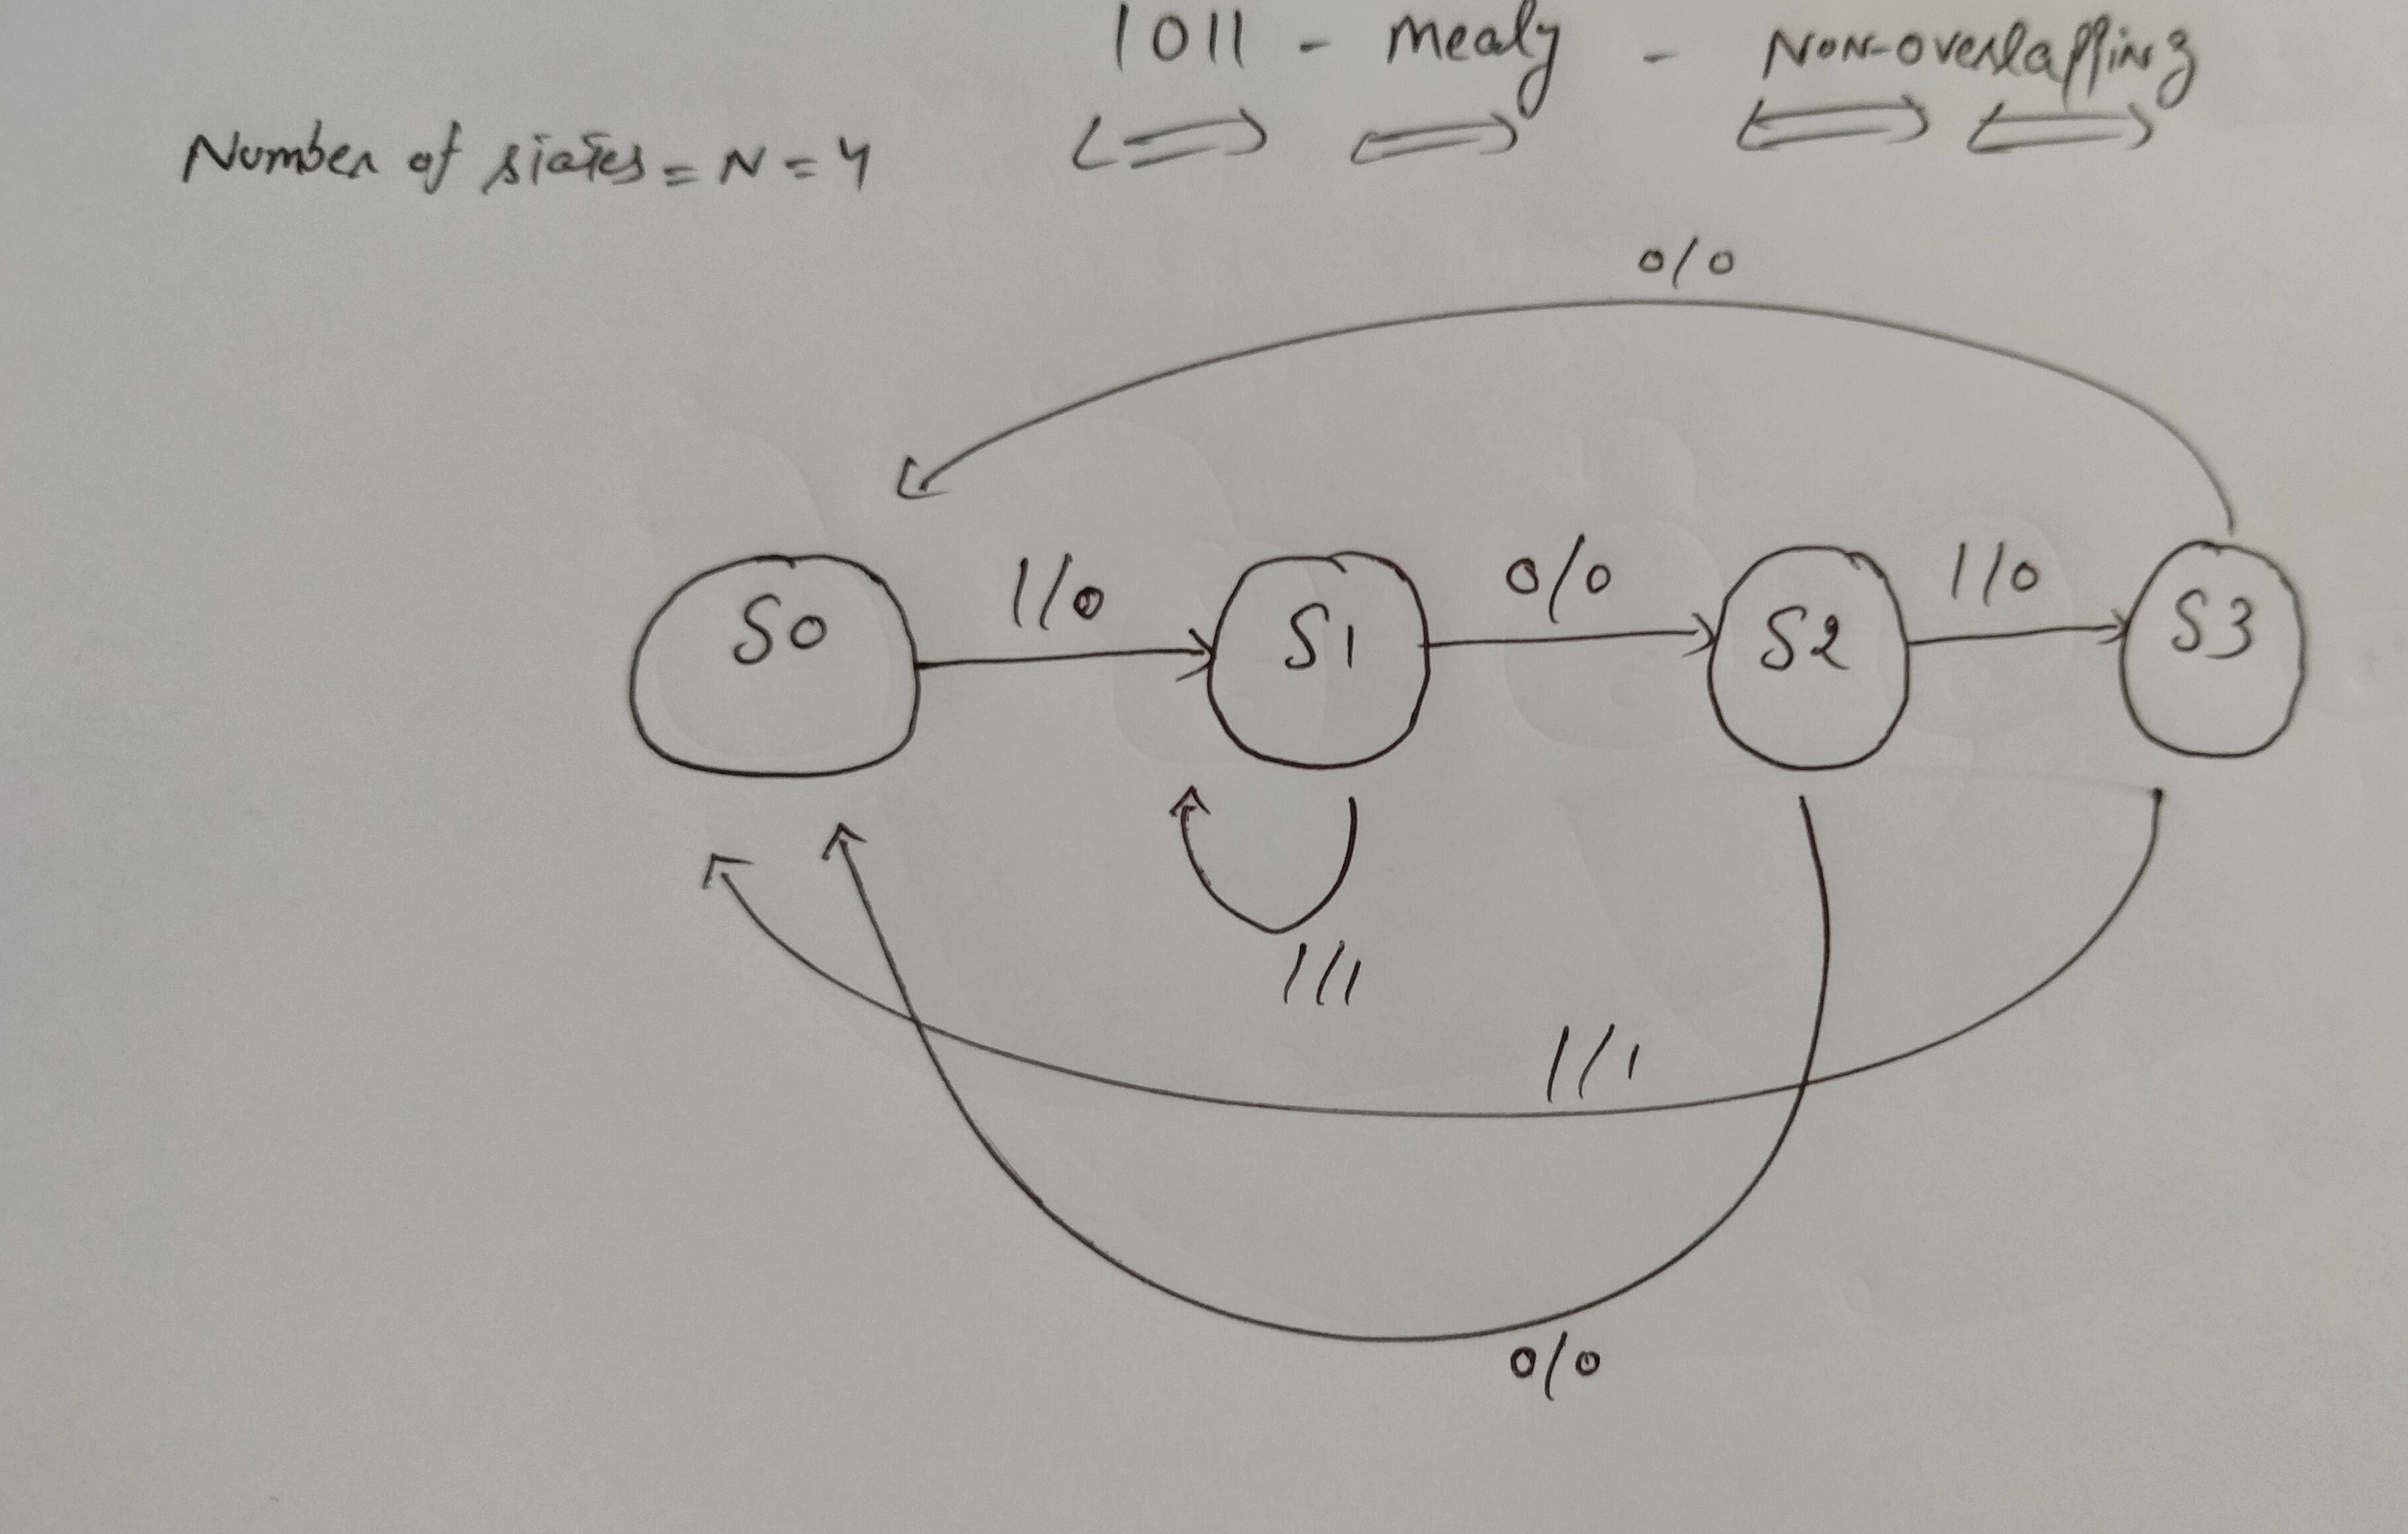 1011 - Mealy - Non-overlapping
Number of states = N = 4
0/0
S0
1/0
S1
0/0
S2
1/0
S3
1/1
1/1
0/0